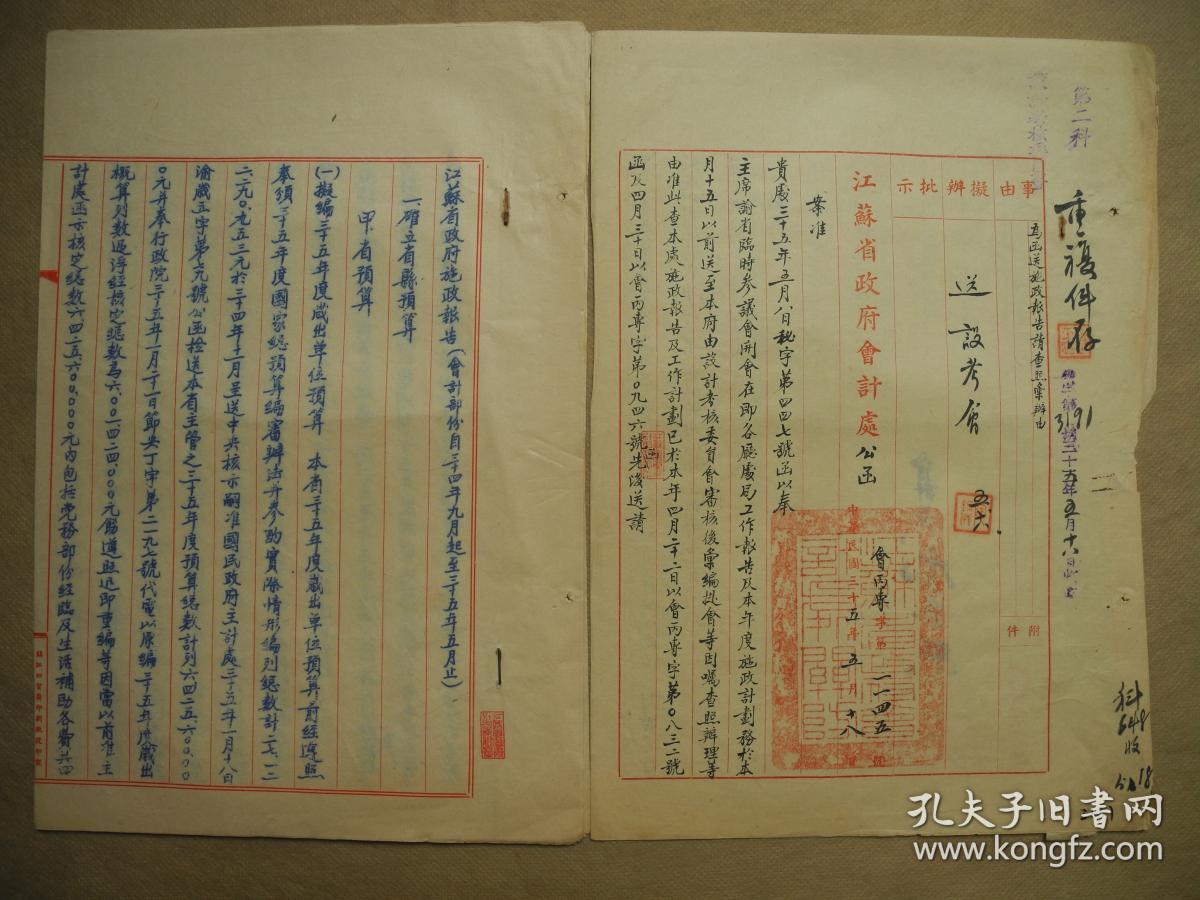 第二科
重複件存
3191
三十五年五月十六日
科
648
收
5/18
事由
擬辦
批示
附件
為函送施政報告請查照彙辦由
送設考會
五六
江蘇省政府會計處公函
會丙專字第一一四五號
中華民國三十五年五月十八日
案准
貴處三十五年五月八日秘字第四四七號函以奉
主席諭省臨時參議會開會在即各廳處局工作報告及本年度施政計劃務於本
月十五日以前送至本府由設計考核委員會審核後彙編提會等因囑查照辦理等
由准此查本處施政報告及工作計劃已於本年四月二十二日以會丙專字第〇八三二號
函及四月三十日以會丙專字第〇九四六號先後送請
江蘇省政府施政報告(會計部份自三十四年九月起至三十五年五月止)
一、確立省縣預算
甲、省預算
(一)擬編三十五年度歲出單位預算 本省三十五年度歲出單位預算前經遵照
奉頒三十五年度國家總預算編審辦法并參酌實際情形編列總數計二七、一二
二、九〇、九五三元於三十四年十一月呈送中央核示嗣准國民政府主計處三十五年一月十八日
渝歲五字第七九號公函檢送本省主管之三十五年度預算總數計列六四二五、六〇〇、〇〇
〇元并奉行政院三十五年一月二十一日節英丁字第二二九七號代電以原編三十五年度歲出
概算列數過浮經核定總數為六、〇〇一、四二四、〇〇〇元飭遵照迅即重編等因當以前准主
計處函示核定總數六、四二五、六〇〇、〇〇〇元內包括黨務部份經臨及生活補助各費共四
孔夫子旧书网
www.kongfz.com